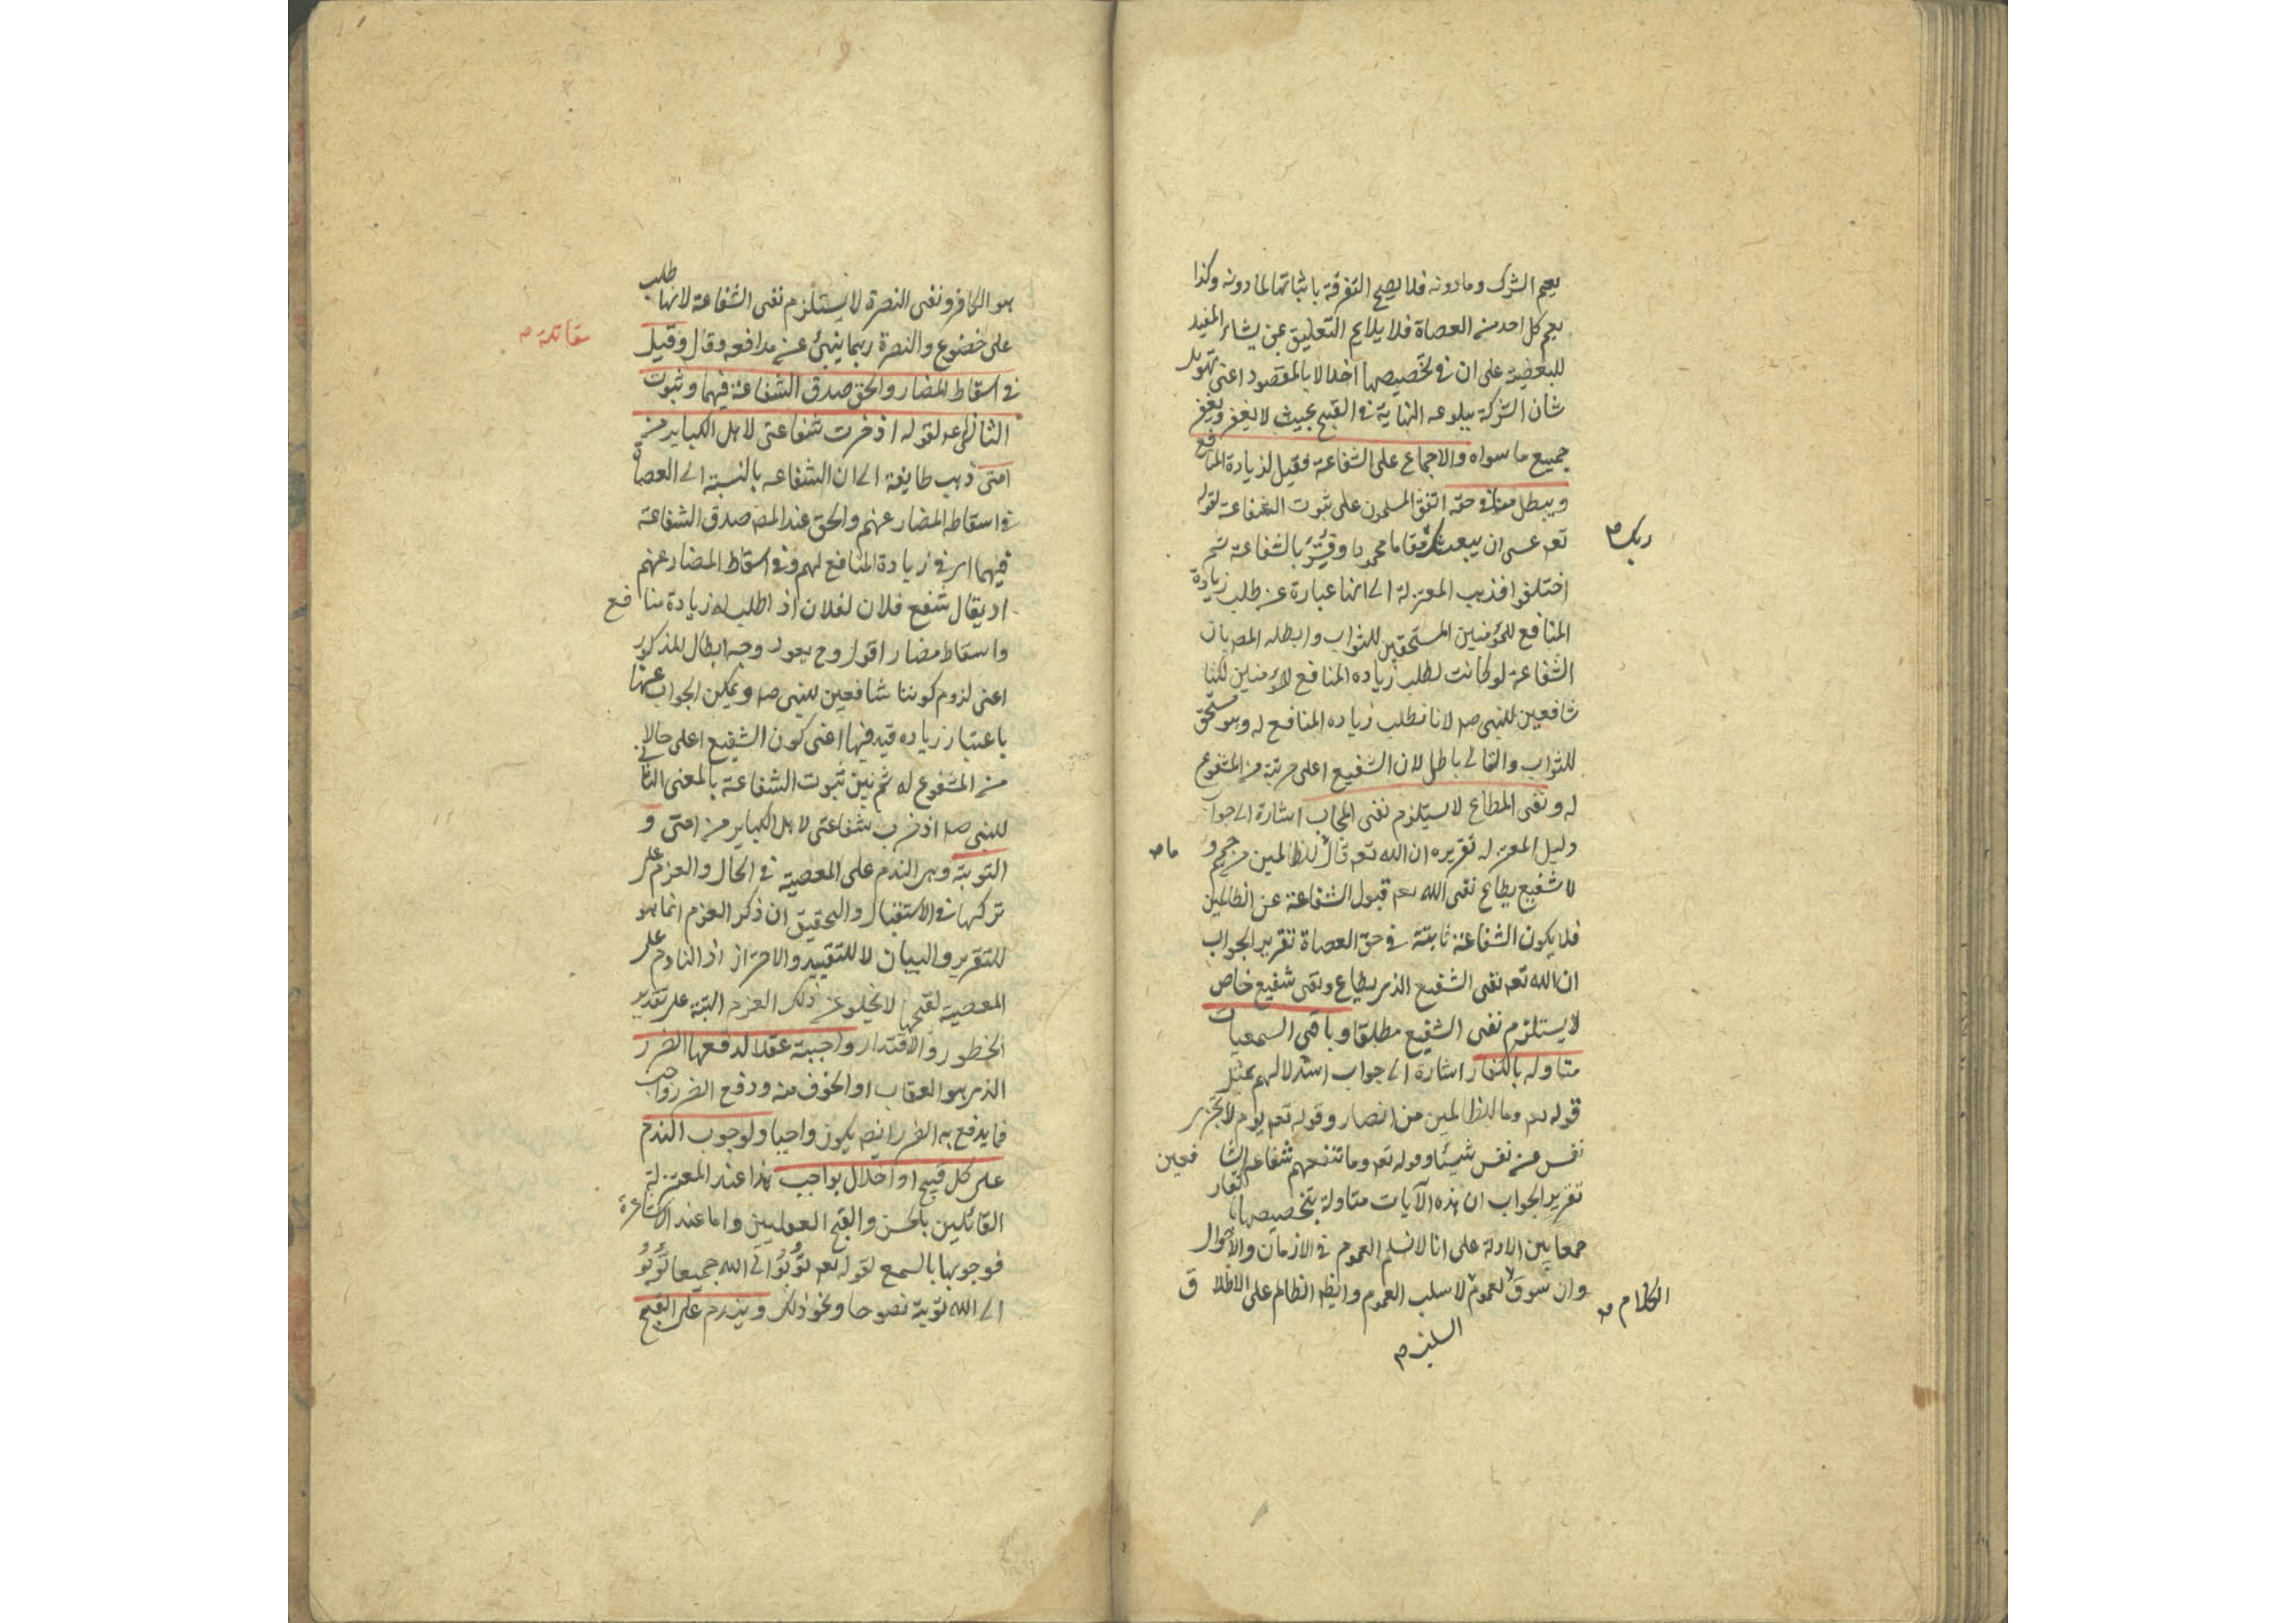 يعم الشرك وما دونه فلا يصح التفرقة باثباتها لما دونه وكذا
يعم كل احد من العصاة فلا يلايم التعليق بمن يشاء المفيد
للبعضية على ان في تخصيصها اخلالا بالمقصود اعنى تهويل
شان الشركة ببلوغه النهاية في القبح بحيث لا يغفر ويغفر
جميع ما سواه والاجماع على الشفاعة فقيل لزيادة المنافع
ويبطل منا في حقه اتفق المسلمون على ثبوت الشفاعة لقوله
تعم عسى ان يبعثك مقاما محمودا وفسر بالشفاعة ثم
ربك ص
اختلفوا فذهب المعتزلة الى انها عبارة عن طلب زيادة
المنافع للمؤمنين المستحقين للثواب وابطله المص بان
الشفاعة لو كانت لطلب زياده المنافع للمؤمنين لكنا
شافعين للنبى صه لانا نطلب زياده المنافع له وهو مستحق
للثواب والتالى باطل لان الشفيع اعلى مرتبة من المشفوع
له ونفى المطاع لا يستلزم نفى المجاب اشارة الى جواب
دليل المعتزله تقريره ان الله تعم قال للظالمين من حميم و
ما ص
لا شفيع يطاع نفى الله تعم قبول الشفاعة عن الظالمين
فلا يكون الشفاعة ثابتة في حق العصاة تقرير الجواب
ان الله تعم نفى الشفيع الذى يطاع ونفى شفيع خاص
لا يستلزم نفى الشفيع مطلقا وباقى السمعيات
متاوله بالكفار اشارة الى جواب استدلالهم بمثل
قوله تعم وما للظالمين من انصار وقوله تعم يوم لا تجزى
نفس عن نفس شيئا وقوله تعم وما تنفعهم شفاعة الشافعين
تقرير الجواب ان هذه الآيات متاولة بتخصيصها بالكفار
جمعا بين الادلة على انا لا نسلم العموم في الازمان والاحوال
وان سوق لعموم لا سلب العموم وايضا الظالم على الاطلاق
الكلام ص
السلب ص
هو الكافر ونفى النصرة لا يستلزم نفى الشفاعة لانها طلب
على خضوع والنصرة ربما ينبئ عن مدافعه وقال وقيل
مقاتلة ص
في اسقاط المضار والحق صدق الشفاعة فيهما وثبوت
الثانى له لقوله ادخرت شفاعتى لاهل الكباير من
امتى ذهب طايفة الى ان الشفاعه بالنسبة الى العصاة
في اسقاط المضار عنهم والحق عند المص صدق الشفاعة
فيهما اى في زيادة المنافع لهم وفي اسقاط المضار عنهم
اذ يقال شفع فلان لفلان اذا طلب له زيادة منافع
واسقاط مضار اقول وح يعود وجه ابطال المذكور
اعنى لزوم كوننا شافعين للنبى صه ويمكن الجواب عنها
باعتبار زياده قيد فيها اعنى كون الشفيع اعلى حالا
من المشفوع له ثم بين ثبوت الشفاعة بالمعنى الثانى
للنبى صه ادخرت شفاعتى لاهل الكباير من امتى و
التوبة وهى الندم على المعصية في الحال والعزم على
تركها في الاستقبال والتحقيق ان ذكر العزم انما هو
للتقرير والبيان لا للتقييد والاحتراز اذ النادم على
المعصية لقبحها لا يخلو عن ذلك العزم البتة على تقدير
الخطور والاقتدار واجبة عقلا لدفعها الضرر
الذى هو العقاب او الخوف منه ودفع الضرر واجب
فما يدفع به الضرر ايضا يكون واجبا ولوجوب الندم
على كل قبيح او اخلال بواجب هذا عند المعتزلة
القائلين بالحسن والقبح العقليين واما عند الاشاعرة
فوجوبها بالسمع لقوله تعم توبوا الى الله جميعا توبوا
الى الله توبة نصوحا ونحو ذلك ويندم على القبح